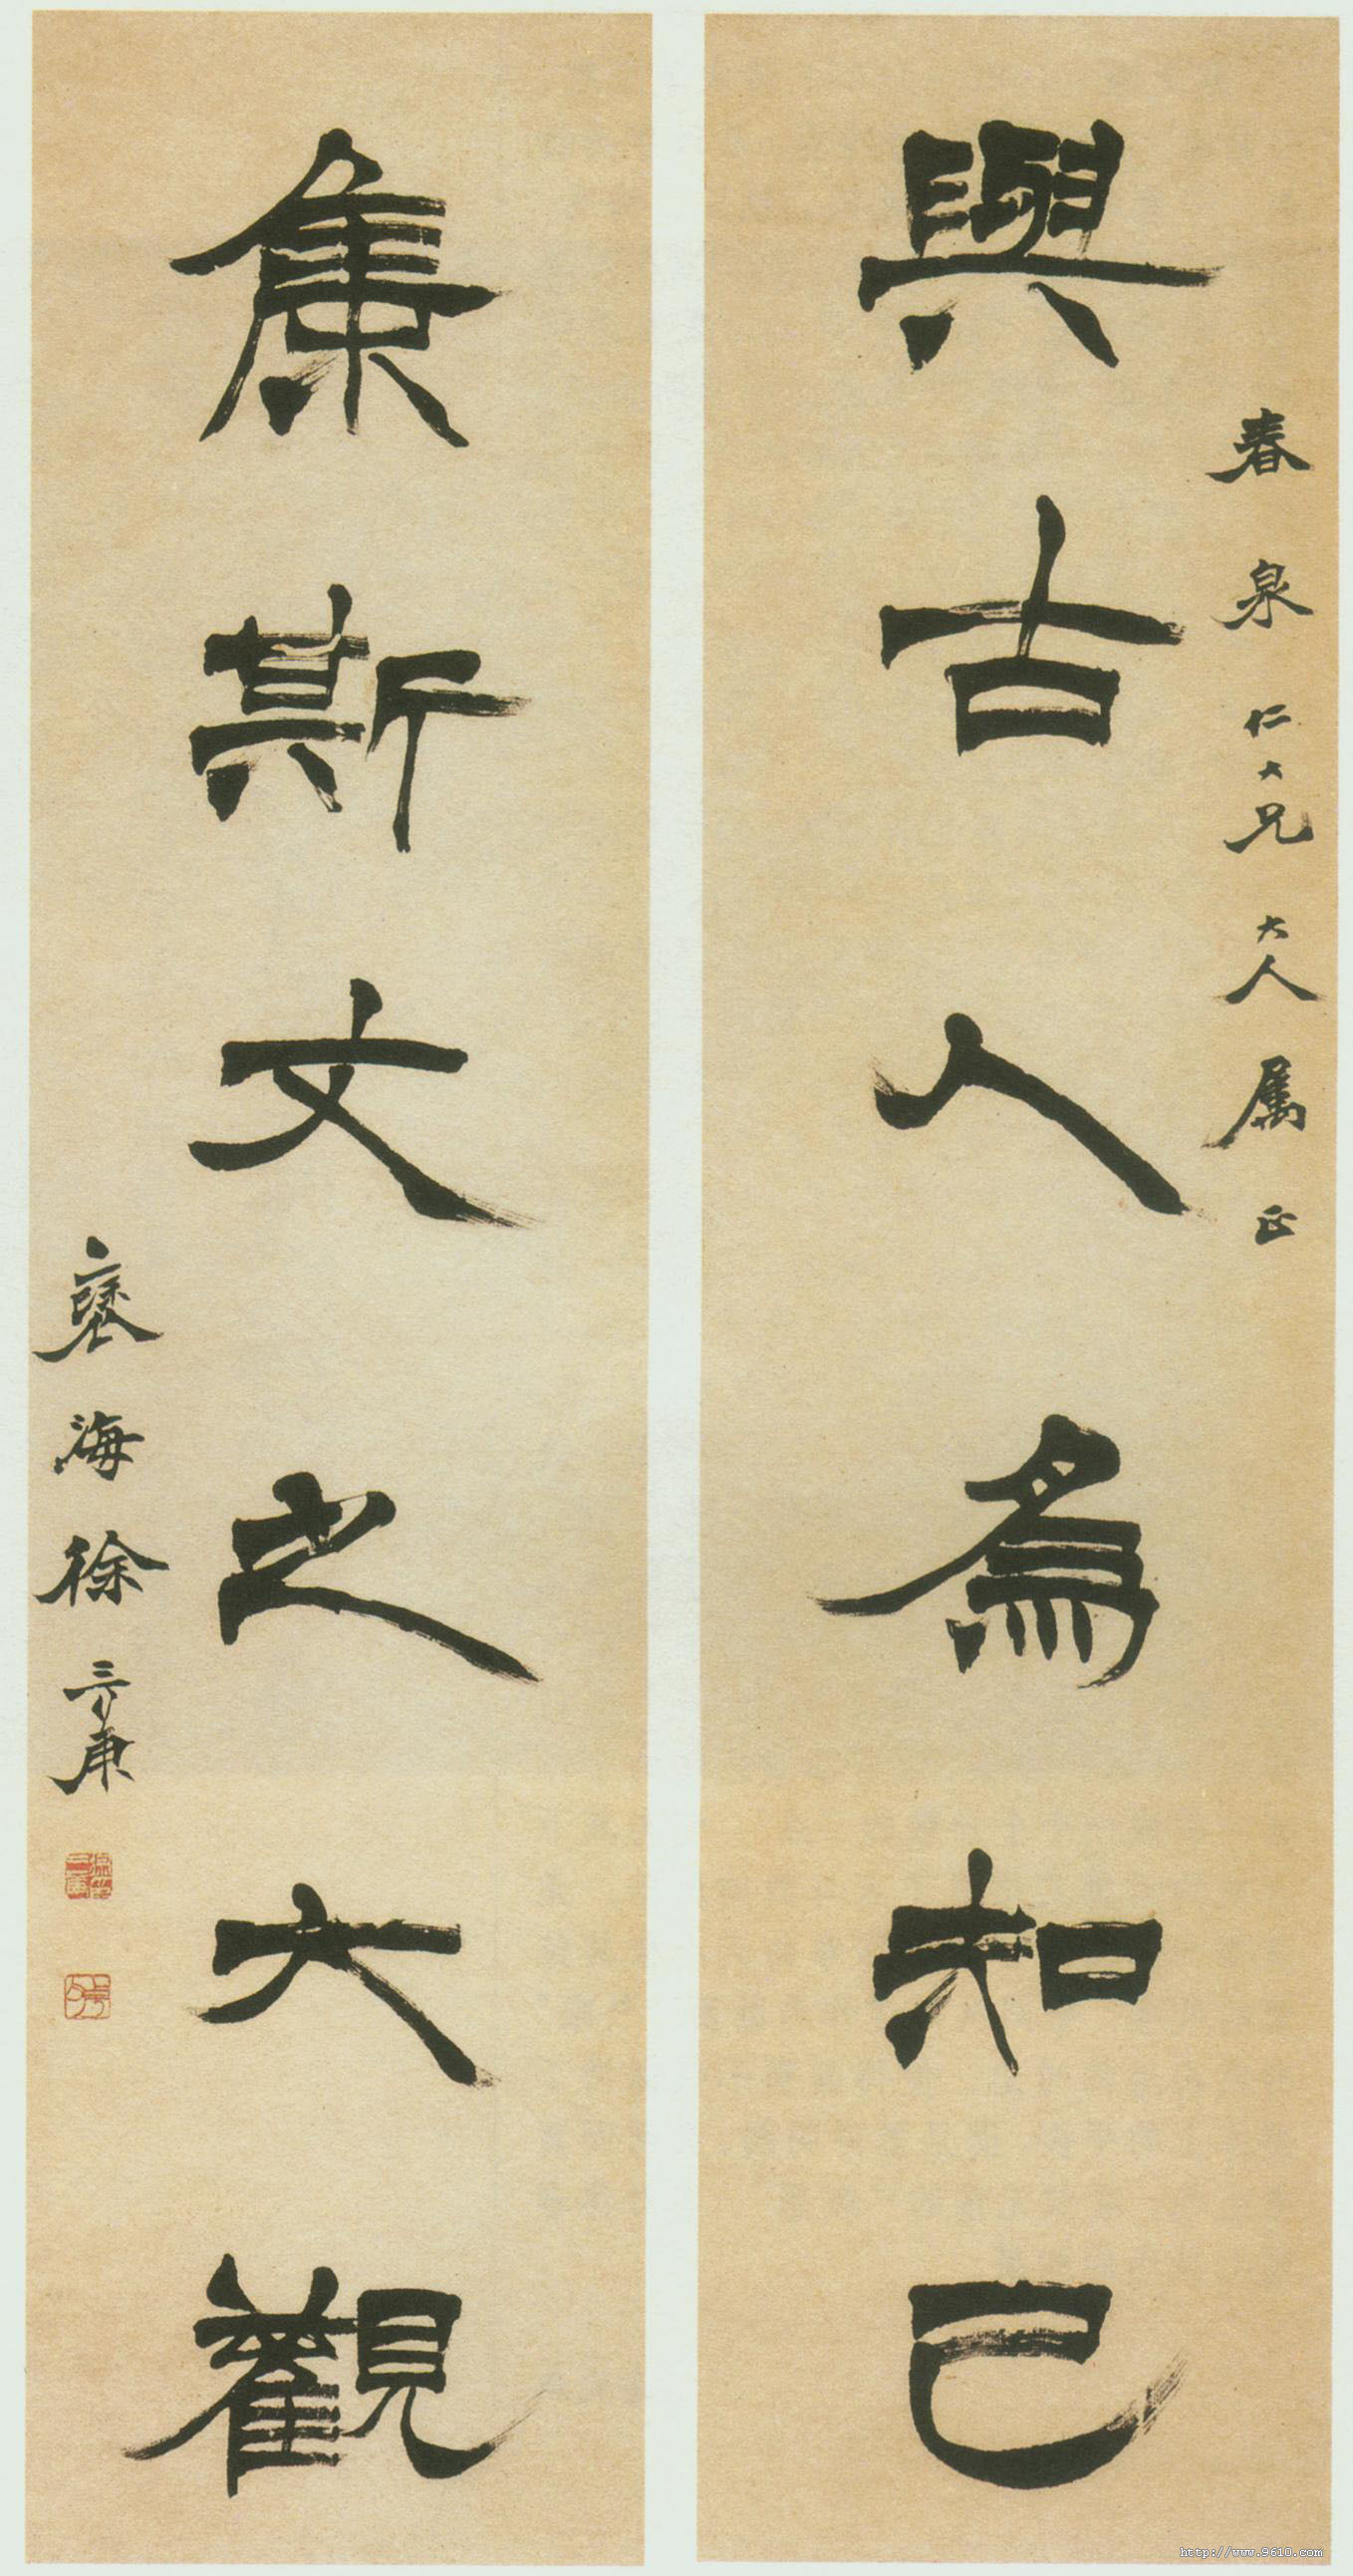 春泉仁大兄大人属正
與古人為知己
集斯文之大觀
褎海徐三庚
http://www.9610.com